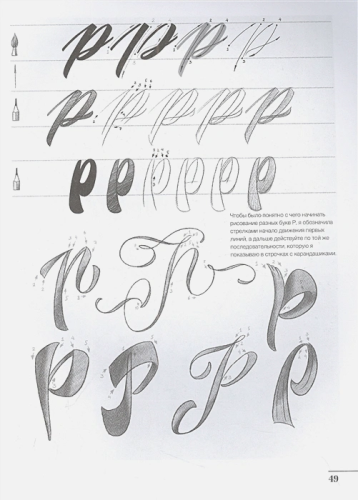 р р р р
р р р р р
р р р р р
Чтобы было понятно с чего начинать
рисование разных букв Р, я обозначила
стрелками начало движения первых
линий, а дальше действуйте по той же
последовательности, которую я
показываю в строчках с карандашиками.
р р р
р р р р
49